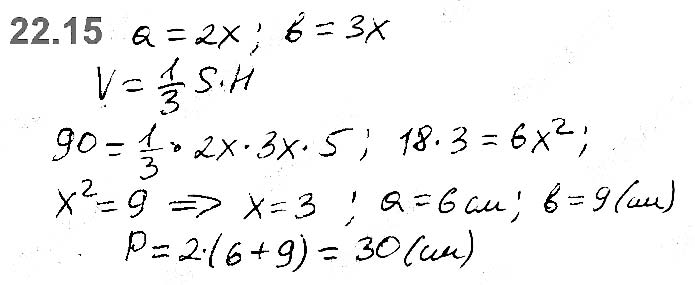 22.15 a = 2x ; b = 3x
V = 1/3 S·H
90 = 1/3 · 2x · 3x · 5 ; 18 · 3 = 6x² ;
x² = 9 ⇒ x = 3 ; a = 6 см ; b = 9 (см)
P = 2·(6 + 9) = 30 (см)